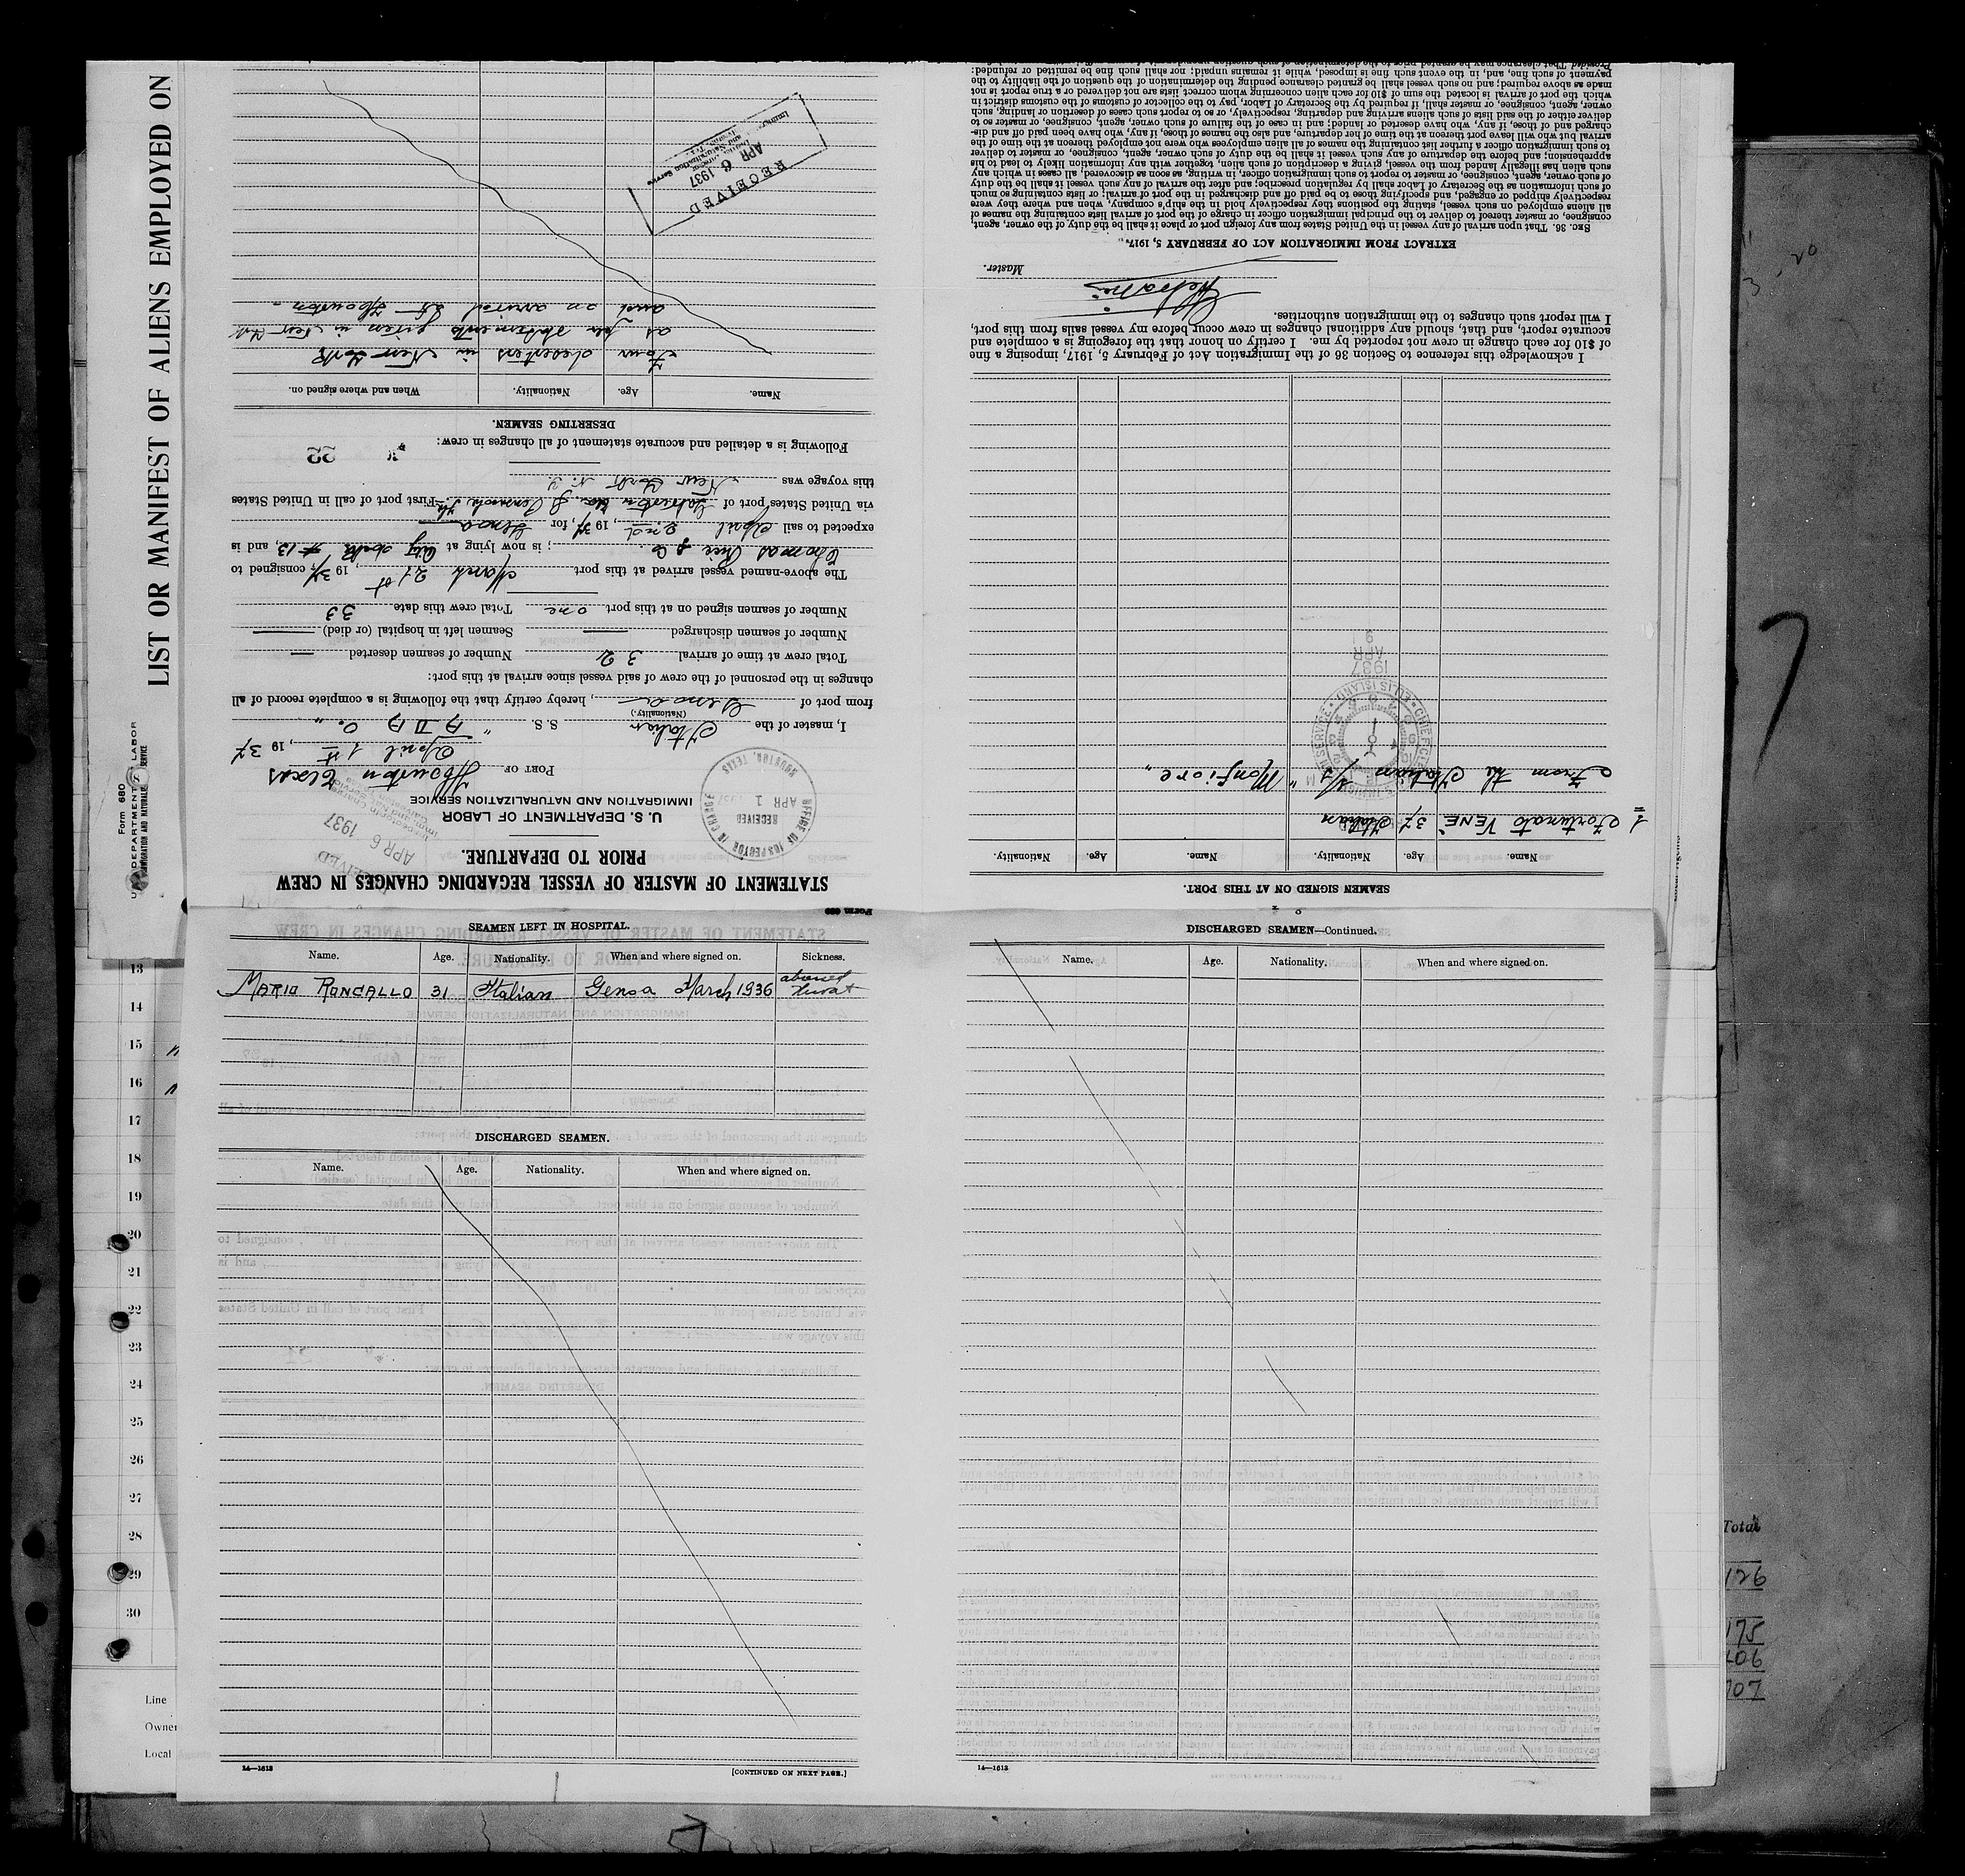 LIST OR MANIFEST OF ALIENS EMPLOYED ON
Form 680
U.S. DEPARTMENT OF LABOR
IMMIGRATION AND NATURALIZATION SERVICE
STATEMENT OF MASTER OF VESSEL REGARDING CHANGES IN CREW
PRIOR TO DEPARTURE.
U. S. DEPARTMENT OF LABOR
IMMIGRATION AND NATURALIZATION SERVICE
OFFICE OF INSPECTOR IN CHARGE
RECEIVED
APR 1 1937
HOUSTON, TEXAS
RECEIVED
APR 6 1937
PORT OF Houston Texas
April 1st, 19 37
I, master of the Italian S. S. "ADA O."
(Nationality.)
from port of Genoa, hereby certify that the following is a complete record of all
changes in the personnel of the crew of said vessel since arrival at this port:
Total crew at time of arrival 32 Number of seamen deserted —
Number of seamen discharged — Seamen left in hospital (or died) —
Number of seamen signed on at this port one Total crew this date 33
The above-named vessel arrived at this port March 21st, 19 37, consigned to
Thomas Rice & Co.; is now lying at City dock # 13, and is
expected to sail April 2nd, 19 37, for Genoa
via United States port of Galveston First port of call in United States
this voyage was New York N. Y.
Following is a detailed and accurate statement of all changes in crew:
22
DESERTING SEAMEN.
Name. Age. Nationality. When and where signed on.
Four deserters in New York
as per statements given in New York
and on arrival at Houston -
RECEIVED
APR 6 1937
Immigration and Naturalization Service
SEAMEN SIGNED ON AT THIS PORT.
Name. Age. Nationality. Name. Age. Nationality.
1 Fortunato VENE 37 Italian
From the Italian S/S "Monfiore"
U.S. IMMIGRATION SERVICE
ELLIS ISLAND
1937
APR
9
I acknowledge this reference to Section 36 of the Immigration Act of February 5, 1917, imposing a fine
of $10 for each change in crew not reported by me. I certify on honor that the foregoing is a complete and
accurate report, and that, should any additional changes in crew occur before my vessel sails from this port,
I will report such changes to the immigration authorities.
Master.
EXTRACT FROM IMMIGRATION ACT OF FEBRUARY 5, 1917.
SEC. 36. That upon arrival of any vessel in the United States from any foreign port or place it shall be the duty of the owner, agent,
consignee, or master thereof to deliver to the principal immigration officer in charge of the port of arrival lists containing the names of
all aliens employed on such vessel, stating the positions they respectively hold in the ship's company, when and where they were
respectively shipped or engaged, and specifying those to be paid off and discharged in the port of arrival; or lists containing so much
of such information as the Secretary of Labor shall by regulation prescribe; and after the arrival of any such vessel it shall be the duty
of such owner, agent, consignee, or master to report to such immigration officer, in writing, as soon as discovered, all cases in which any
such alien has illegally landed from the vessel, giving a description of such alien, together with any information likely to lead to his
apprehension; and before the departure of any such vessel it shall be the duty of such owner, agent, consignee, or master to deliver
to such immigration officer a further list containing the names of all alien employees who were not employed thereon at the time of the
arrival but who will leave port thereon at the time of her departure, and also the names of those, if any, who have been paid off and dis-
charged and of those, if any, who have deserted or landed; and in case of the failure of such owner, agent, consignee, or master so to
deliver either of the said lists of such aliens arriving and departing, respectively, or so to report such cases of desertion or landing, such
owner, agent, consignee, or master shall, if required by the Secretary of Labor, pay to the collector of customs of the customs district in
which the port of arrival is located the sum of $10 for each alien concerning whom correct lists are not delivered or a true report is not
made as above required; and no such vessel shall be granted clearance pending the determination of the question of the liability to the
payment of such fine, and, in the event such fine is imposed, while it remains unpaid; nor shall such fine be remitted or refunded:
Provided That clearance may be granted prior to the determination
Form 680
SEAMEN LEFT IN HOSPITAL.
Name. Age. Nationality. When and where signed on. Sickness.
MARIO RONCALLO 31 Italian Genoa March 1936
DISCHARGED SEAMEN.
Name. Age. Nationality. When and where signed on.
14—1613
[CONTINUED ON NEXT PAGE.]
DISCHARGED SEAMEN—Continued.
Name. Age. Nationality. When and where signed on.
14—1613
13
14
15
16
17
18
19
20
21
22
23
24
25
26
27
28
29
30
Line
Owner
Local
7
Total
126
175
406
707